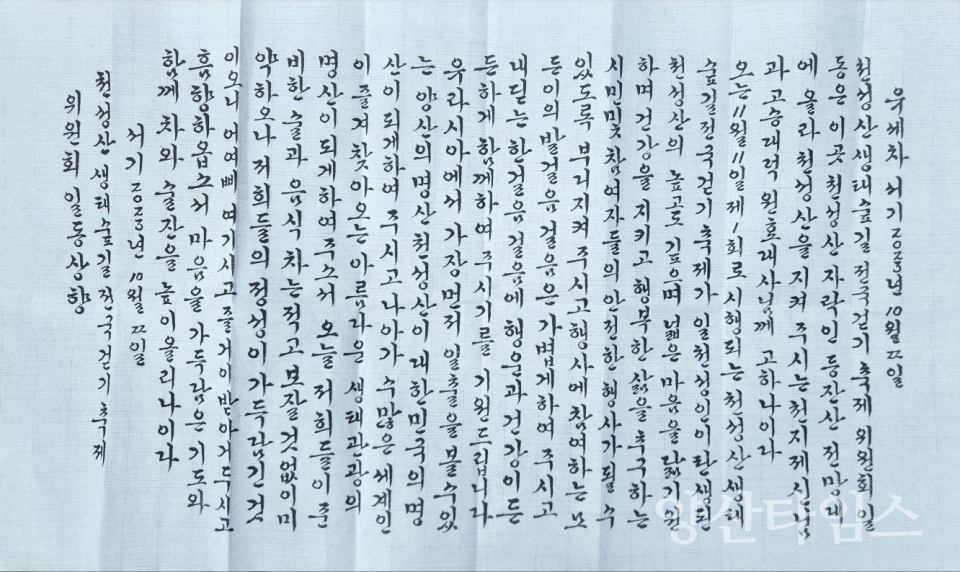 유세차 서기 2023년 10월 22일
천성산 생태숲길 전국걷기 축제 위원회 일
동은 이곳 천성산 자락인 등잔산 전망대
에 올라 천성산을 지켜 주시는 천지제신님
과 고승대덕 원효대사님께 고하나이다
오는 11월 11일 제 1회로 시행되는 천성산 생태
숲길전국걷기 축제가 일천성인이 탄생된
천성산의 높고도 깊으며 넓은 마음을 닮기 원
하며 건강을 지키고 행복한 삶을 추구하는
시민및 참여자들의 안전한 행사가 될 수
있도록 부디 지켜 주시고 행사에 참여하는 모
든이의 발걸음 걸음은 가볍게하여 주시고
내딛는 한걸음 걸음에 행운과 건강이 든
든하게 함께하여 주시기를 기원드립니다
유라시아에서 가장 먼저 일출을 볼수있
는 양산의 명산 천성산이 대한민국의 명
산이 되게하여 주시고 나아가 수많은 세계인
이 즐겨찾아오는 아름다운 생태관광의
명산이 되게하여 주소서 오늘 저희들이 준
비한 술과 음식 차는 적고 보잘것없이 미
약하오나 저희들의 정성이 가득담긴 것
이오니 어여삐 여기시고 즐거이 받아 거두시고
흠향하옵소서 마음을 가득담은 기도와
함께 차와 술잔을 높이 올리나이다
서기 2023년 10월 22일
천성산 생태숲길 전국걷기 축제
위원회 일동 상향
양산타임스